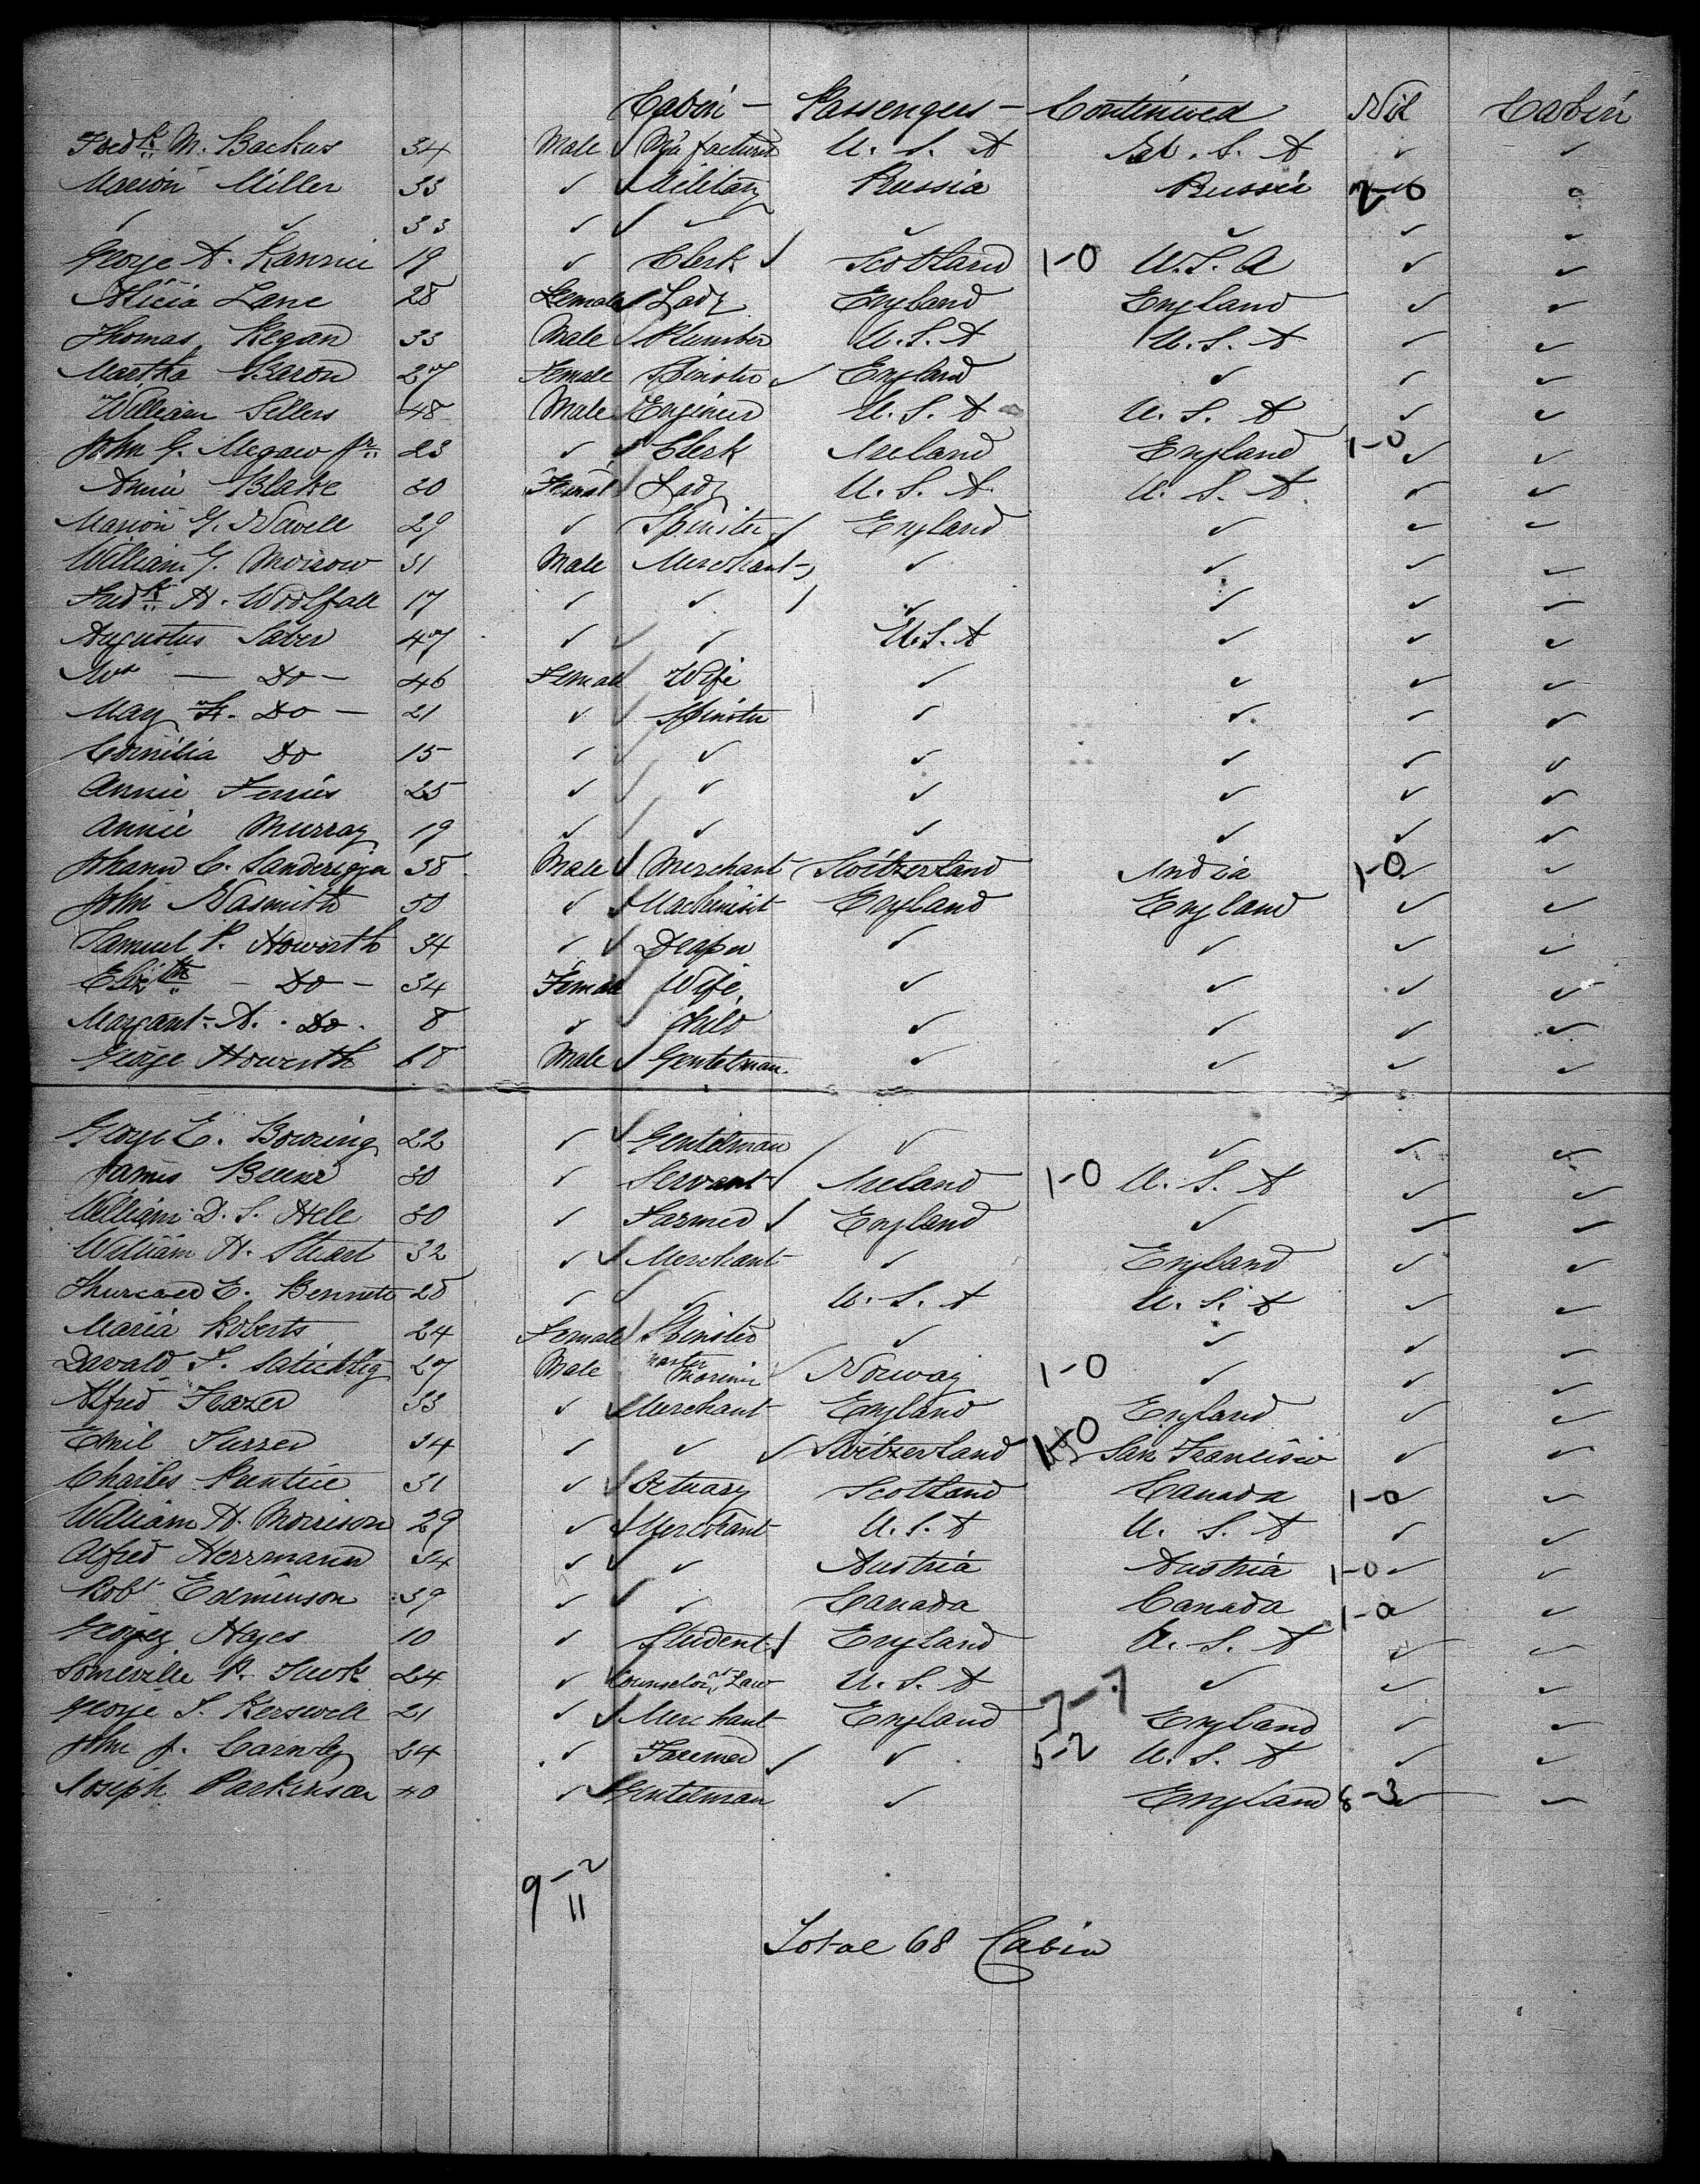 Cabin - Passengers - Continued Nil Cabin
Fredk M. Backus 34 Male Mfa facturer U. S. A U. S. A ✓ ✓
Marion Miller 33 ✓ Military Russia Russia 2-0
✓ ✓ 33 ✓ ✓ ✓ ✓ ✓ ✓
George A. 19 ✓ Clerk Scotland 1-0 U.S.A ✓ ✓
Alicia Lane 28 Female Lady England England ✓ ✓
Thomas Regan 33 Male Plumber U.S.A U.S.A ✓ ✓
Martha Baron 27 Female Spinster England ✓ ✓ ✓
William Sellers 48 Male Engineer U.S.A U.S.A ✓ ✓
John G. Megaw Jr. 23 ✓ Clerk Ireland England 1-0 ✓ ✓
Annie Blake 20 Female Lady U.S.A. U.S.A. ✓ ✓
Marion G. Newell 29 ✓ Spinster England ✓ ✓ ✓
William G. Morrow 31 Male Merchant ✓ ✓ ✓ ✓
Fredk A. Woolfall 17 ✓ ✓ ✓ ✓ ✓ ✓
Augustus Saber 47 ✓ ✓ U.S.A ✓ ✓ ✓
Mrs — Do — 46 Female Wife ✓ ✓ ✓ ✓
May F. Do — 21 ✓ Spinster ✓ ✓ ✓ ✓
Cornilia Do 15 ✓ ✓ ✓ ✓ ✓ ✓
Annie Ferris 25 ✓ ✓ ✓ ✓ ✓ ✓
Annie Murray 19 ✓ ✓ ✓ ✓ ✓ ✓
Johann C. 38 Male Merchant Switzerland India 1-0 ✓ ✓
John Nasmith 50 ✓ Machinist England England ✓ ✓
Samuel P. Howorth 34 ✓ Draper ✓ ✓ ✓ ✓
Elizth - Do - 34 Female Wife ✓ ✓ ✓ ✓
Margant A. Do. 8 ✓ Child ✓ ✓ ✓ ✓
George Howorth 68 Male Gentelman ✓ ✓ ✓ ✓
George E. Bowring 22 ✓ Gentelman ✓ ✓ ✓ ✓
James 30 ✓ Servant Ireland 1-0 U.S.A ✓ ✓
William D. S. Hele 30 ✓ Farmer England ✓ ✓ ✓
William H. Stuart 32 ✓ Merchant ✓ England ✓ ✓
E. Bennett 28 ✓ ✓ U.S.A U.S.A ✓ ✓
Maria Roberts 24 Female Spinster ✓ ✓ ✓ ✓
27 Male Master Mariner Norway 1-0 ✓ ✓ ✓
Alfred Frazer 33 ✓ Merchant England England ✓ ✓
Emil 34 ✓ ✓ Switzerland 1-0 San Francisco ✓ ✓
Charles Prentice 31 ✓ Actuary Scotland Canada 1-0 ✓ ✓
William H. Morrison 29 ✓ Merchant U.S.A U.S.A ✓ ✓
Alfred Herrmann 34 ✓ ✓ Austria Austria 1-0 ✓ ✓
Robt Edminson 39 ✓ ✓ Canada Canada 1-0 ✓ ✓
Hayes 10 ✓ Student England U.S.A ✓ ✓
Somerville P. Tuck 24 ✓ Counselor at Law U.S.A ✓ ✓ ✓
George S. Kerswell 21 ✓ Merchant England 7-7 England ✓ ✓
John J. 24 ✓ Farmer ✓ 5-2 U.S.A ✓ ✓
Joseph Parkinson 40 ✓ Gentelman ✓ England 8-3 ✓ ✓
9-2
11
Total 68 Cabin